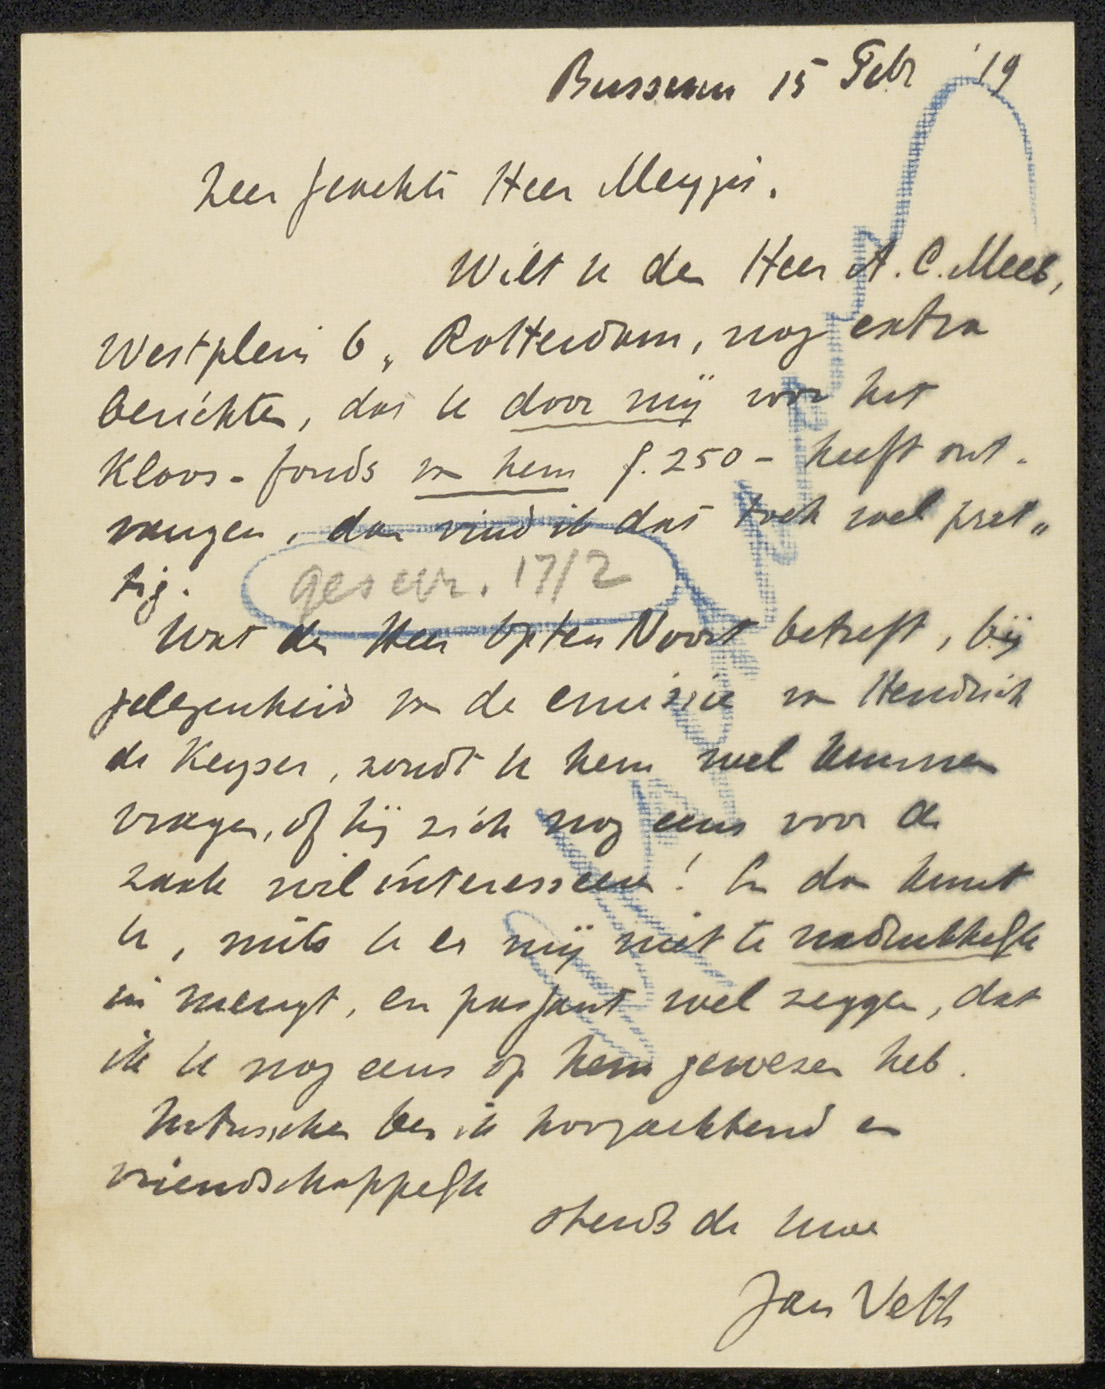 Bussum 15 Febr '19
Zeer geachte Heer Meyjes,
Wilt u den Heer A. C. Mees,
Westplein 6, Rotterdam, nog extra
berichten, dat u door mij voor het
Kloos-fonds van hem f. 250- heeft ont-
vangen, dan vind ik dat toch wel pret„
tig.
geschr. 17/2
Wat den Heer Op ten Noort betreft, bij
gelegenheid van de emissie van Hendrick
de Keyser, zoudt u hem wel kunnen
vragen, of hij zich nog eens voor de
zaak wil interesseeren! En dan kunt
u, mits u er mij niet te nadrukkelijk
in mengt, en passant wel zeggen, dat
ik u nog eens op hem gewezen heb.
Intusschen ben ik hoogachtend en
vriendschappelijk
steeds de Uwe
Jan Veth